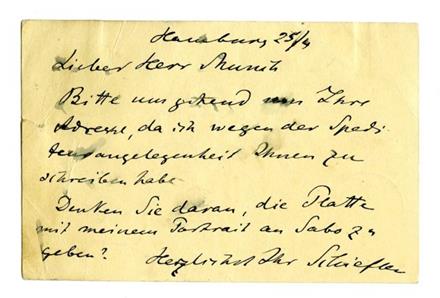 Hamburg 25/4
Lieber Herr Munch
Bitte umgehend um Ihre
Adresse, da ich wegen der Spedi
tionsangelegenheit Ihnen zu
schreiben habe
Denken Sie daran, die Platte
mit meinem Portrait an Sabo zu
geben? Herzlichst Ihr Schiefler